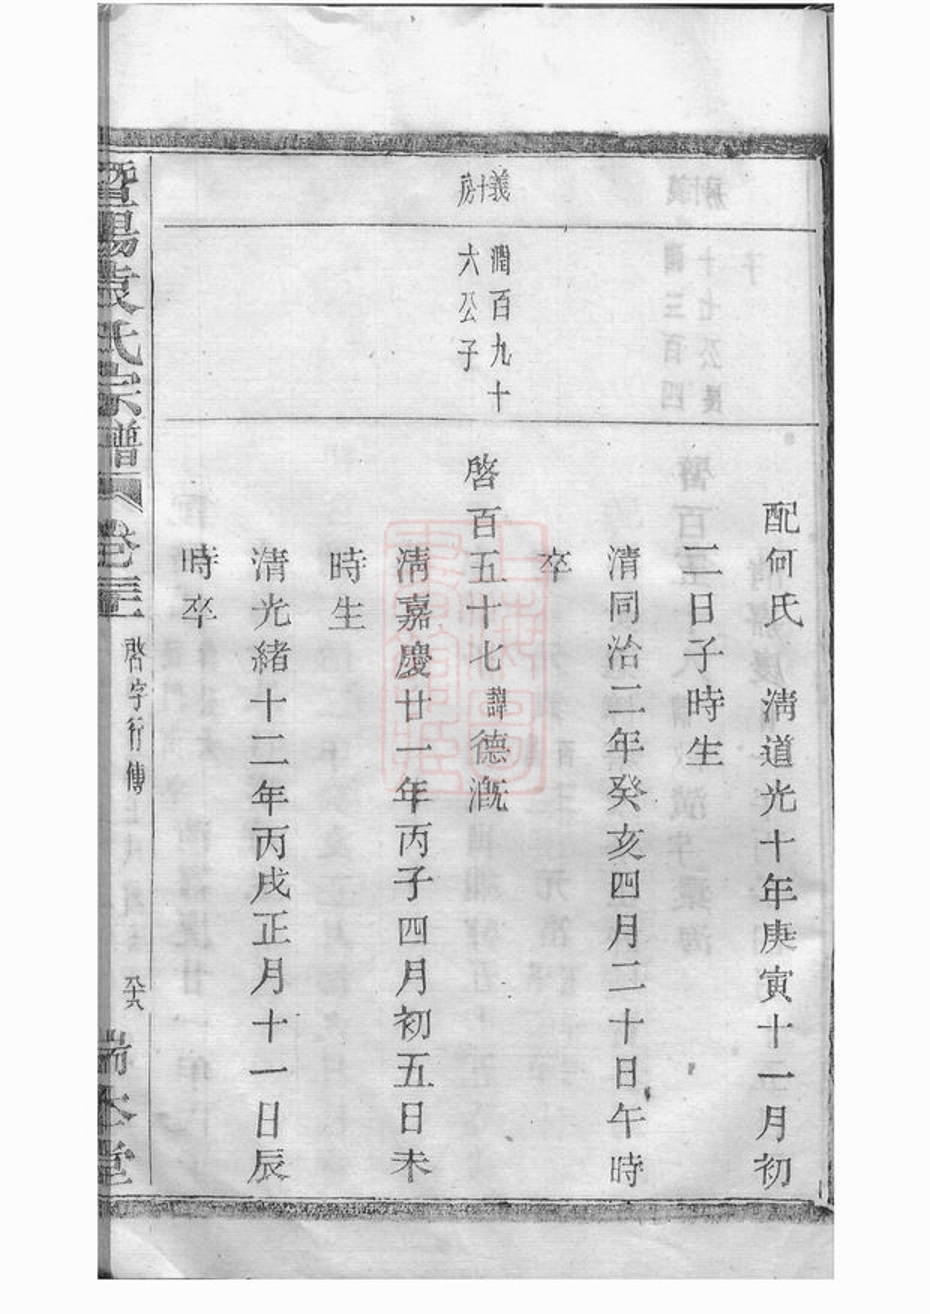 配何氏 淸道光十年庚寅十一月初
二日子時生
淸同治二年癸亥四月二十日午時
卒
義十房
潤百九十
六公子
啓百五十七諱德溉
淸嘉慶廿一年丙子四月初五日未
時生
淸光緒十二年丙戌正月十一日辰
時卒
暨陽袁氏宗譜
啓字行傳
端本堂